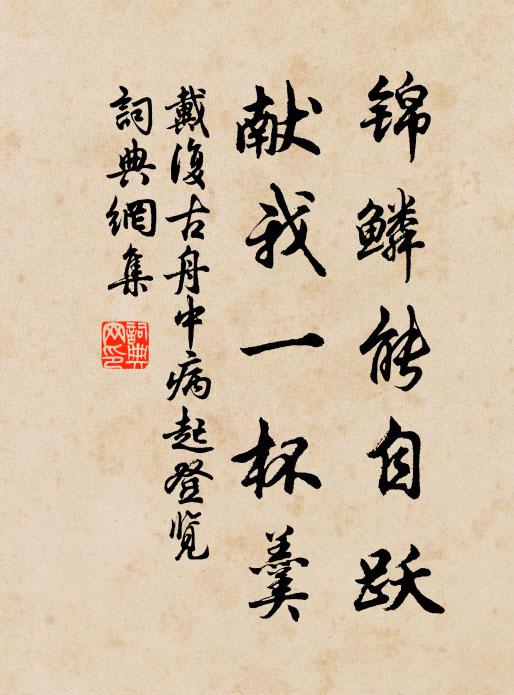 锦鳞能自跃
献我一杯羹
戴復古舟中病起登览
詞典網集
詞典網印